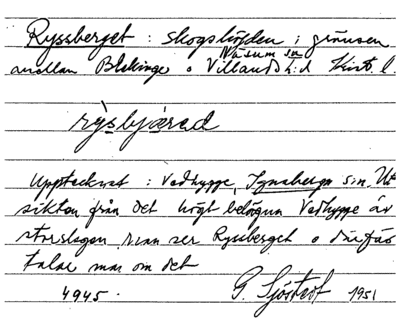 Ryssberget : skogshöjden i gränsen
Näsum sn
mellan Blekinge o Villands h:d Krist. l.
rysbjärad
Upptecknat : Vedhygge, Ysaneberga sn. Ut
sikten från det högt belägna Vedhygge är
storslagen man ser Ryssberget o därför
talar man om det
4945. G. Sjöstedt 1951